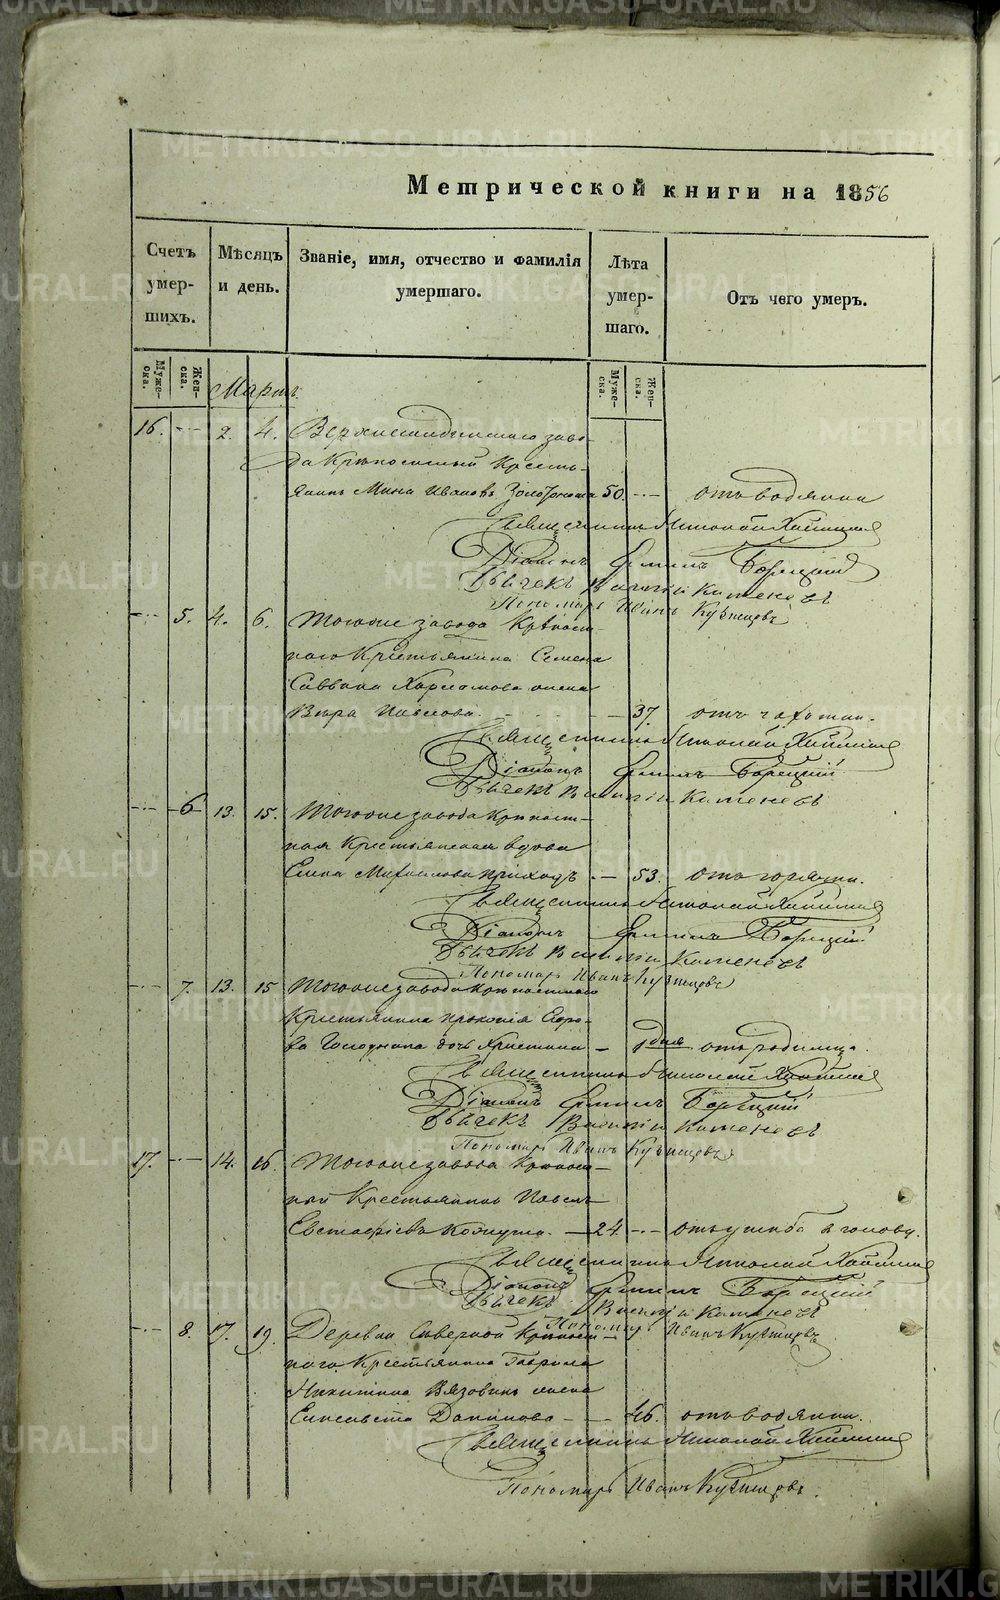 METRIKI.GASO-URAL.RU
Метрической книги на 1856
Счетъ умер-шихъ.
Мѣсяцъ и день.
Званіе, имя, отчество и фамилія умершаго.
Лѣта умер-шаго.
Отъ чего умеръ.
Муже-ска.
Жен-ска.
Муже-ска.
Жен-ска.
Мартъ
16. 2. 4. заво-
да Крѣпостный Кресть-
янинъ Мина Ивановъ 50. отъ водянки
Священникъ Николай
Діаконъ Ермилъ Борецкій
Дьячекъ Василій Каменевъ
Пономарь Иванъ Кузнецовъ
5. 4. 6. Тогоже завода Крѣпост-
наго Крестьянина Семена
Саввина Харламова жена
Вѣра Павлова. 37. отъ чахотки.
Священникъ Николай
Діаконъ Ермилъ Борецкій
Дьячекъ Василій Каменевъ
6 13. 15. Тогоже завода Крѣпост-
ная Крестьянская вдова
Елена Михайлова 53. отъ горячки.
Священникъ Николай
Діаконъ Ермилъ Борецкій
Дьячекъ Василій Каменевъ
Пономарь Иванъ Кузнецовъ
7. 13. 15 Тогоже завода Крѣпостнаго
Крестьянина Прокопія Его-
ва дочь Христина 1 дня отъ родимца.
Священникъ Николай
Діаконъ Ермилъ Борецкій
Дьячекъ Василій Каменевъ
Пономарь Иванъ Кузнецовъ
17. 14. 16. Тогоже завода Крѣпост-
ный Крестьянинъ Павелъ
Евстафіевъ 24 отъ ушиба в голову.
Священникъ Николай
Діаконъ Ермилъ Борецкій
Дьячекъ Василій Каменевъ
Пономарь Иванъ Кузнецовъ
8. 17. 19. Деревни Северной Крѣпост-
наго Крестьянина Гаврила
Никитина Вязовина жена
Елисавета Данилова 46. отъ водянки.
Священникъ Николай
Пономарь Иванъ Кузнецовъ.